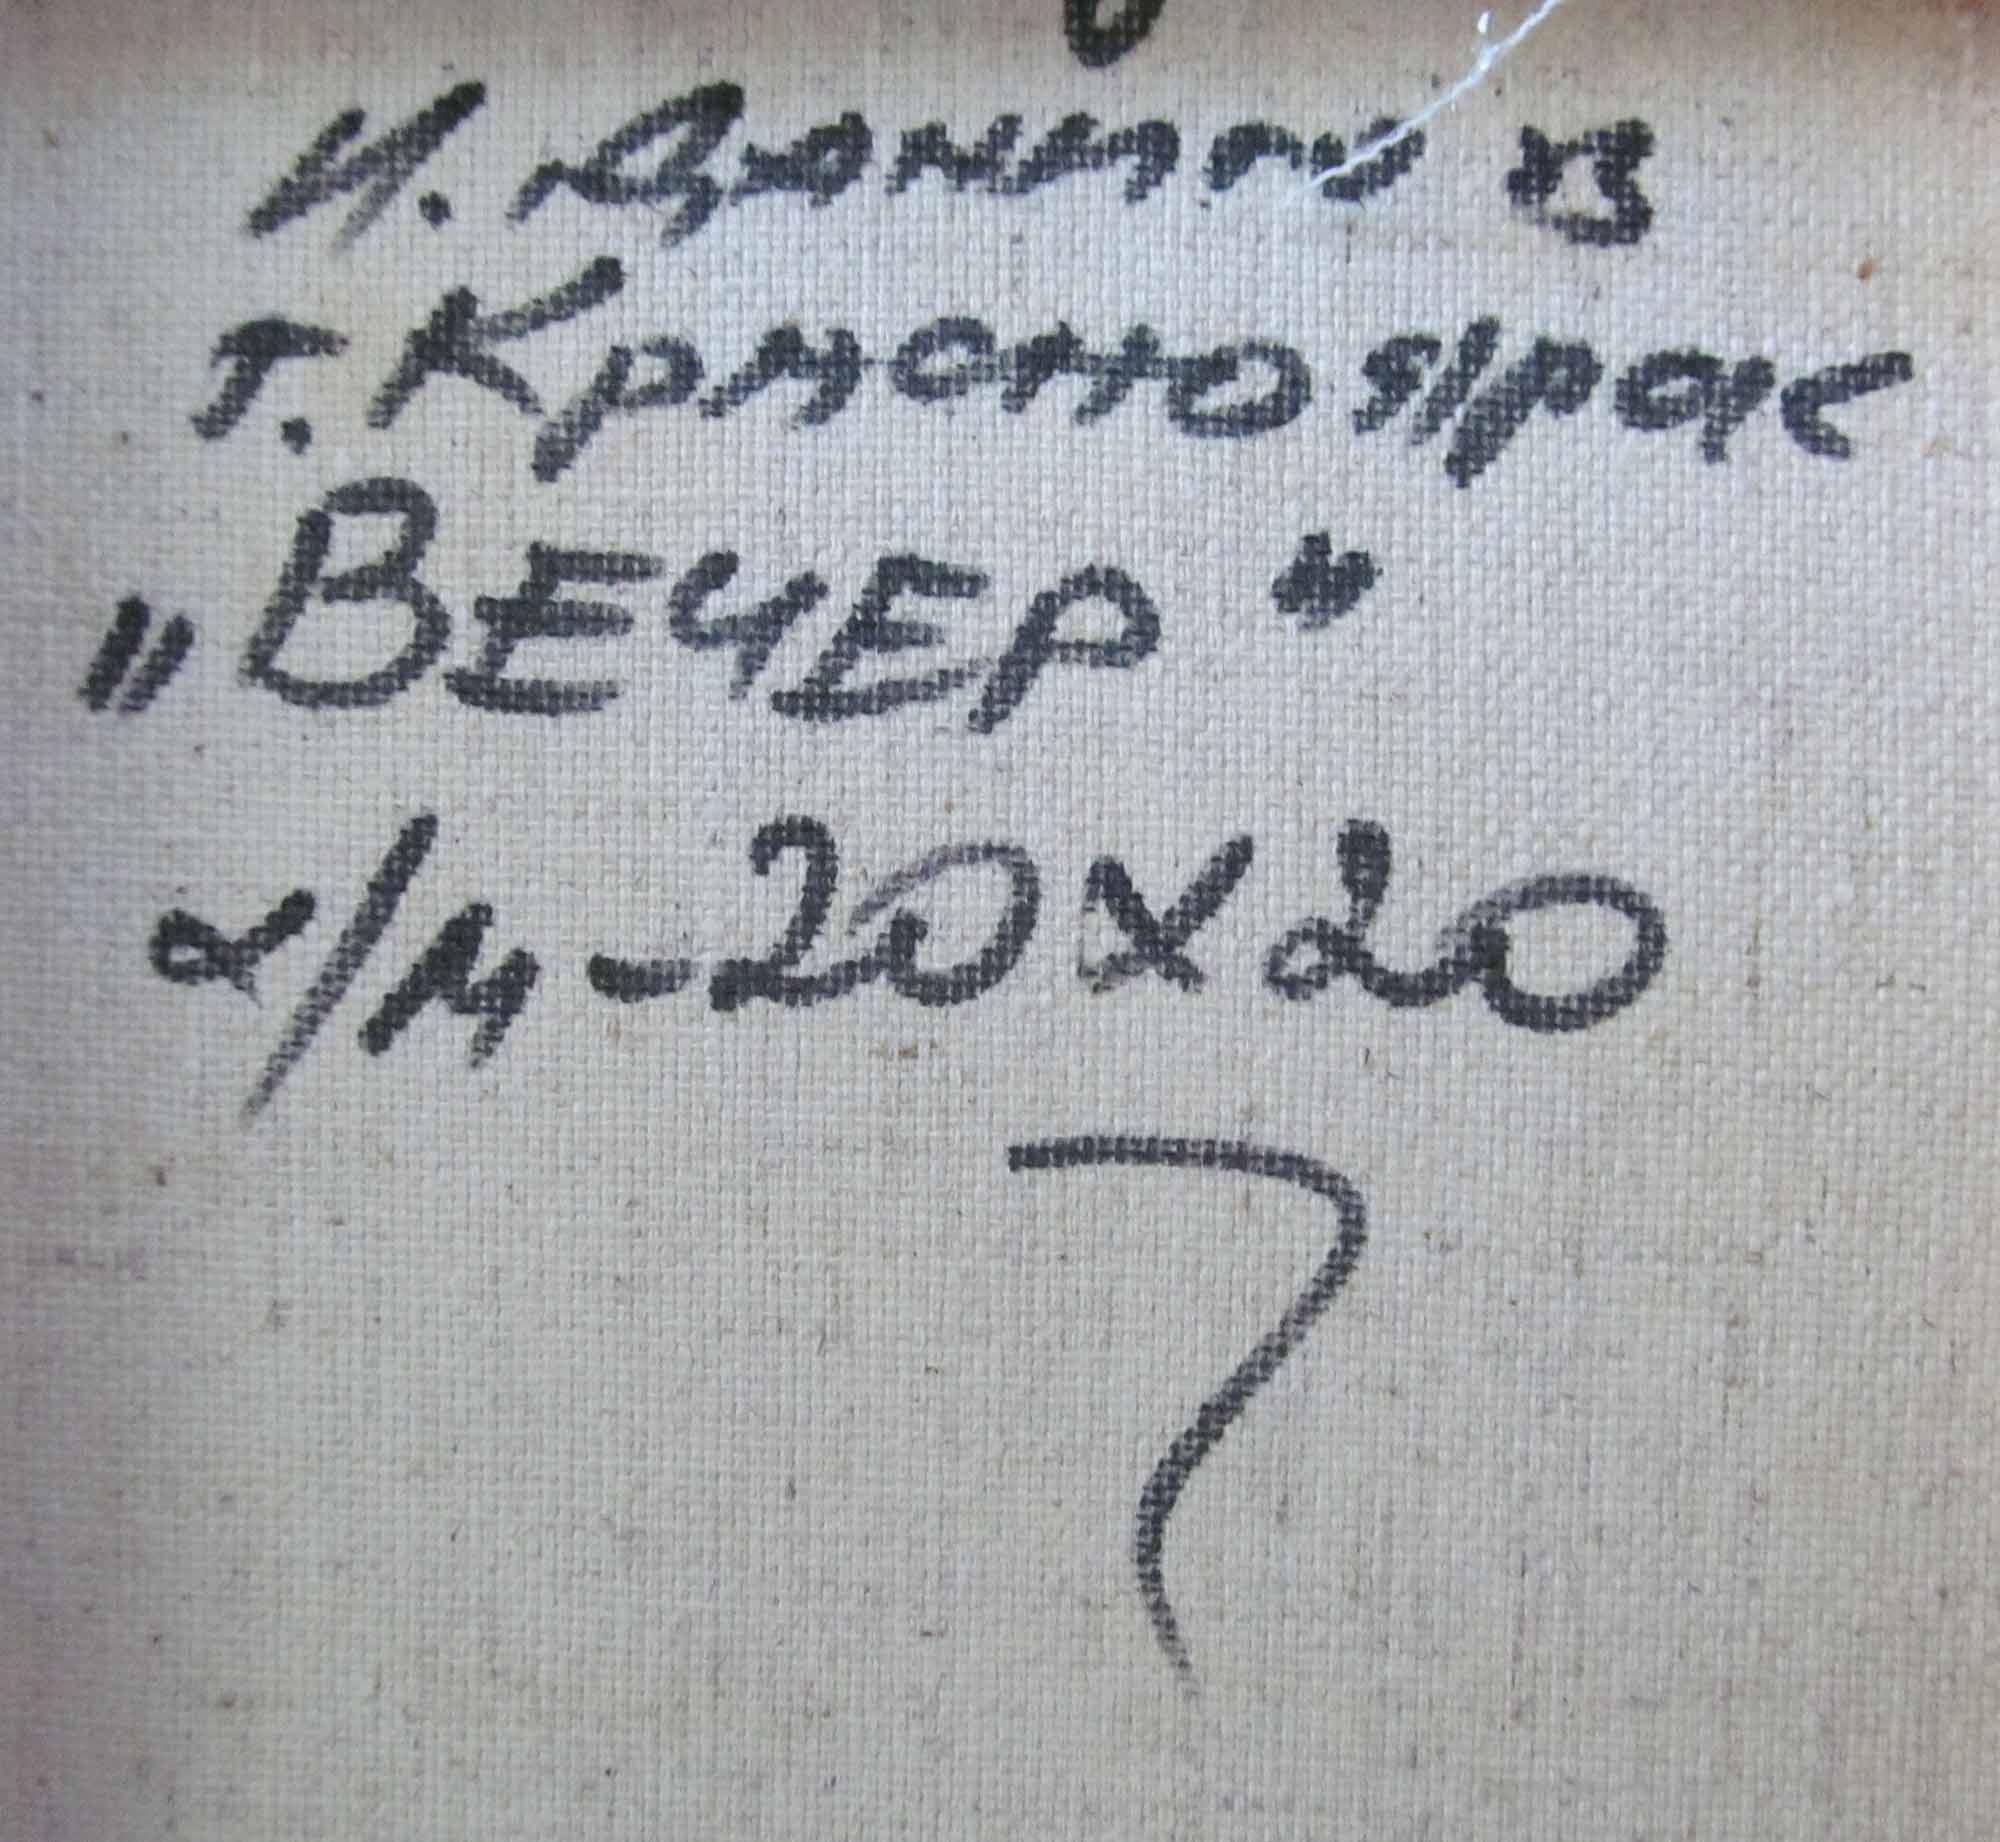 И. Данилов
г. Красноярск
„ВЕЧЕР“
х/м - 20 х 20